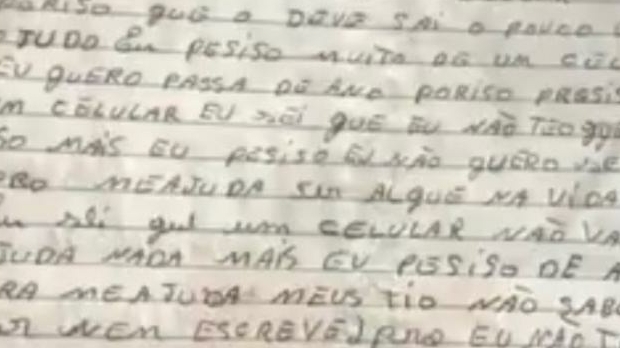 PORISO QUE O DEVE SAI O POUCO
JUDO Eu PESISO MUITO DE UM CEL
EU QUERO PASSA DE ANO PORISO PRESIS
M CELULAR EU SEI QUE EU NÃO TEO QUE
SO MAIS EU PESISO EU NÃO QUERO SE
MEAJUDA SER ALGUÉ NA VIDA
Eu sei que um CELULAR NÃO VA
JUDA NADA MAIS EU PESSISO DE A
RA MEAJUDA MEUS TIO NÃO SABE
NEM ESCREVE EU NÃO T